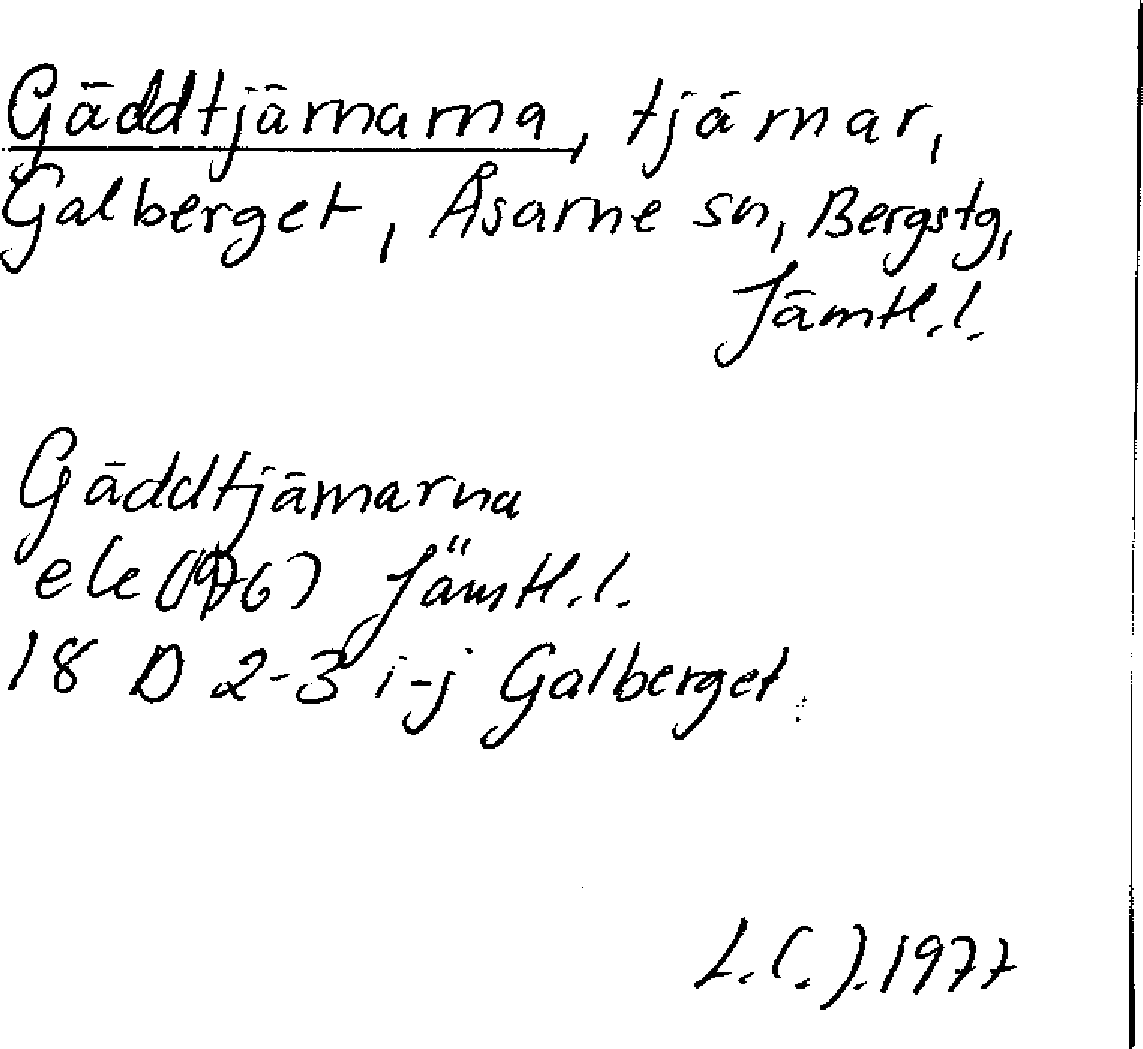 Gäddtjärnarna, tjärnar,
Galberget, Åsarne sn, Bergs tg,
Jämtl.l.
Gäddtjärnarna
ek (1976) Jämtl.l.
18 D 2-3 i-j Galberget
L.C.J. 1977